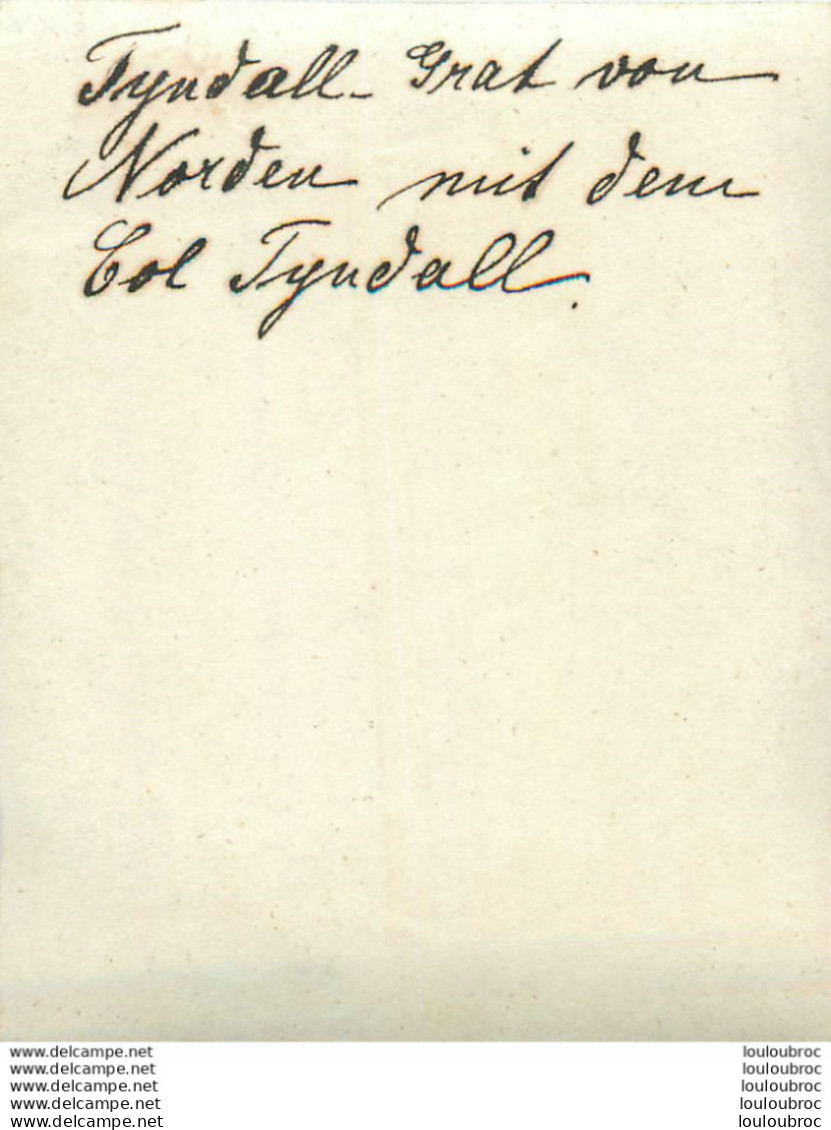 Tyndall-Grat von
Norden mit dem
Col Tyndall.
www.delcampe.net louloubroc
www.delcampe.net louloubroc
www.delcampe.net louloubroc
www.delcampe.net louloubroc
www.delcampe.net louloubroc